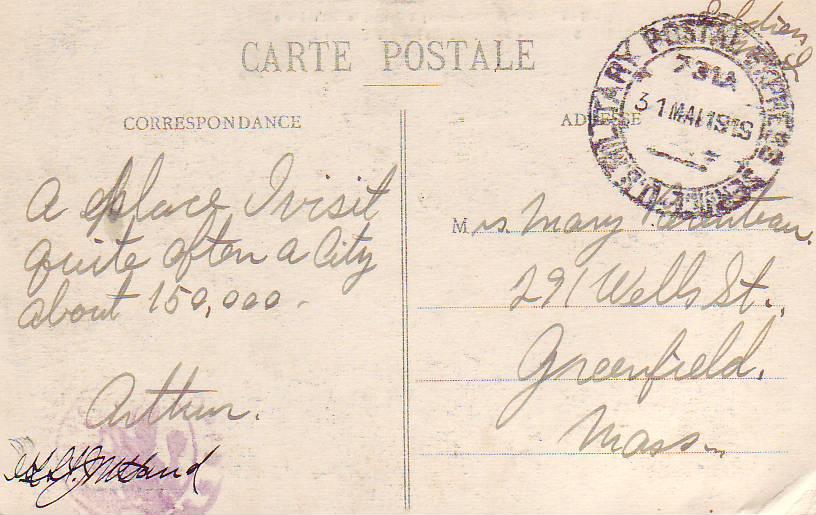 CARTE POSTALE
MILITARY POSTAL EXPRESS SERVICE
731A
31 MAI 1919
CORRESPONDANCE
ADRESSE
A place I visit
quite often a City
about 150,000.
Arthur.
Mrs. Mary
291 Wells St.,
Greenfield.
Mass.